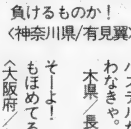 負けるものか！
〈神奈川県/有見翼〉
わなきゃ。
木県/長
そーよ！
もほめてる
〈大阪府/